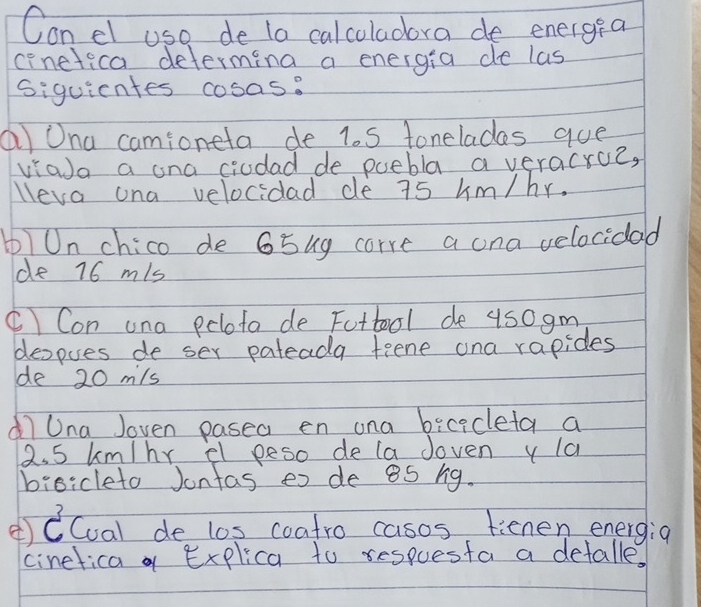 Con el uso de la calculadora de energia
cinetica determina a energia de las
siguientes cosas:
a) Una camioneta de 1.5 toneladas que
viaJa a una ciudad de puebla a veracruz,
lleva una velocidad de 75 km/hr.
b) Un chico de 65kg corre a una velocidad
de 16 m/s
c) Con una pelota de Futbool de 450gm
despues de ser pateada tiene una rapides
de 20 m/s
d) Una Joven pasea en una bicicleta a
2.5 km/hr el peso de la Joven y la
bicicleta Juntas es de 85 kg.
e) ¿Cual de los cuatro casos tienen energia
cinetica Explica tu respuesta a detalle.